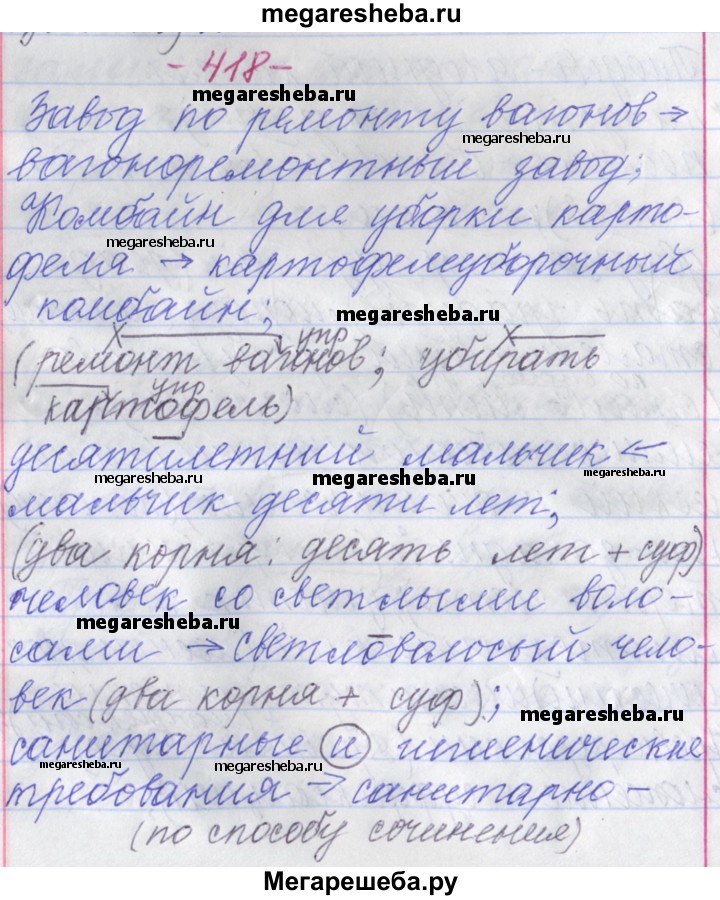 megaresheba.ru
- 418 -
megaresheba.ru
Завод по ремонту вагонов →
megaresheba.ru
вагоноремонтный завод;
Комбайн для уборки карто-
megaresheba.ru
феля → картофелеуборочный
комбайн;
megaresheba.ru
х упр х
(ремонт вагонов; убирать
упр
картофель)
десятилетний мальчик ←
megaresheba.ru megaresheba.ru megaresheba.ru
мальчик десяти лет;
(два корня: десять лет + суф)
человек со светлыми воло-
megaresheba.ru
сами → светловолосый чело-
век (два корня + суф);
megaresheba.ru
санитарные и гигиенические
megaresheba.ru megaresheba.ru
требования → санитарно-
(по способу сочинения)
megaresheba.ru
Мегарешеба.ру